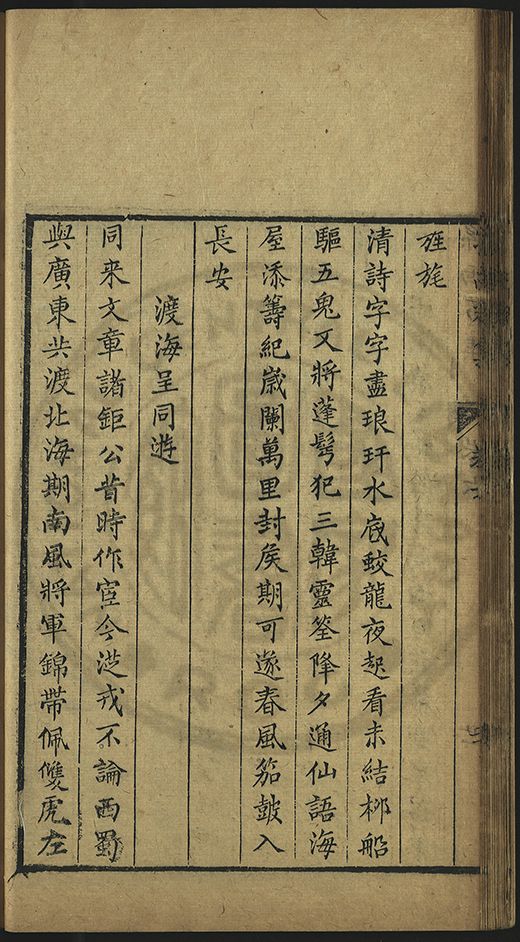 旌旄
清詩字字盡琅玕水底蛟龍夜起看未結桴船
驅五鬼又將蓬髩犯三韓靈筌降夕通仙語海
屋添籌紀歲闌萬里封侯期可遂春風笳鼓入
長安
渡海呈同遊
同来文章諸鉅公昔時作宦今從戎不論西蜀
與廣東共渡北海期南風將軍錦帶佩雙虎左